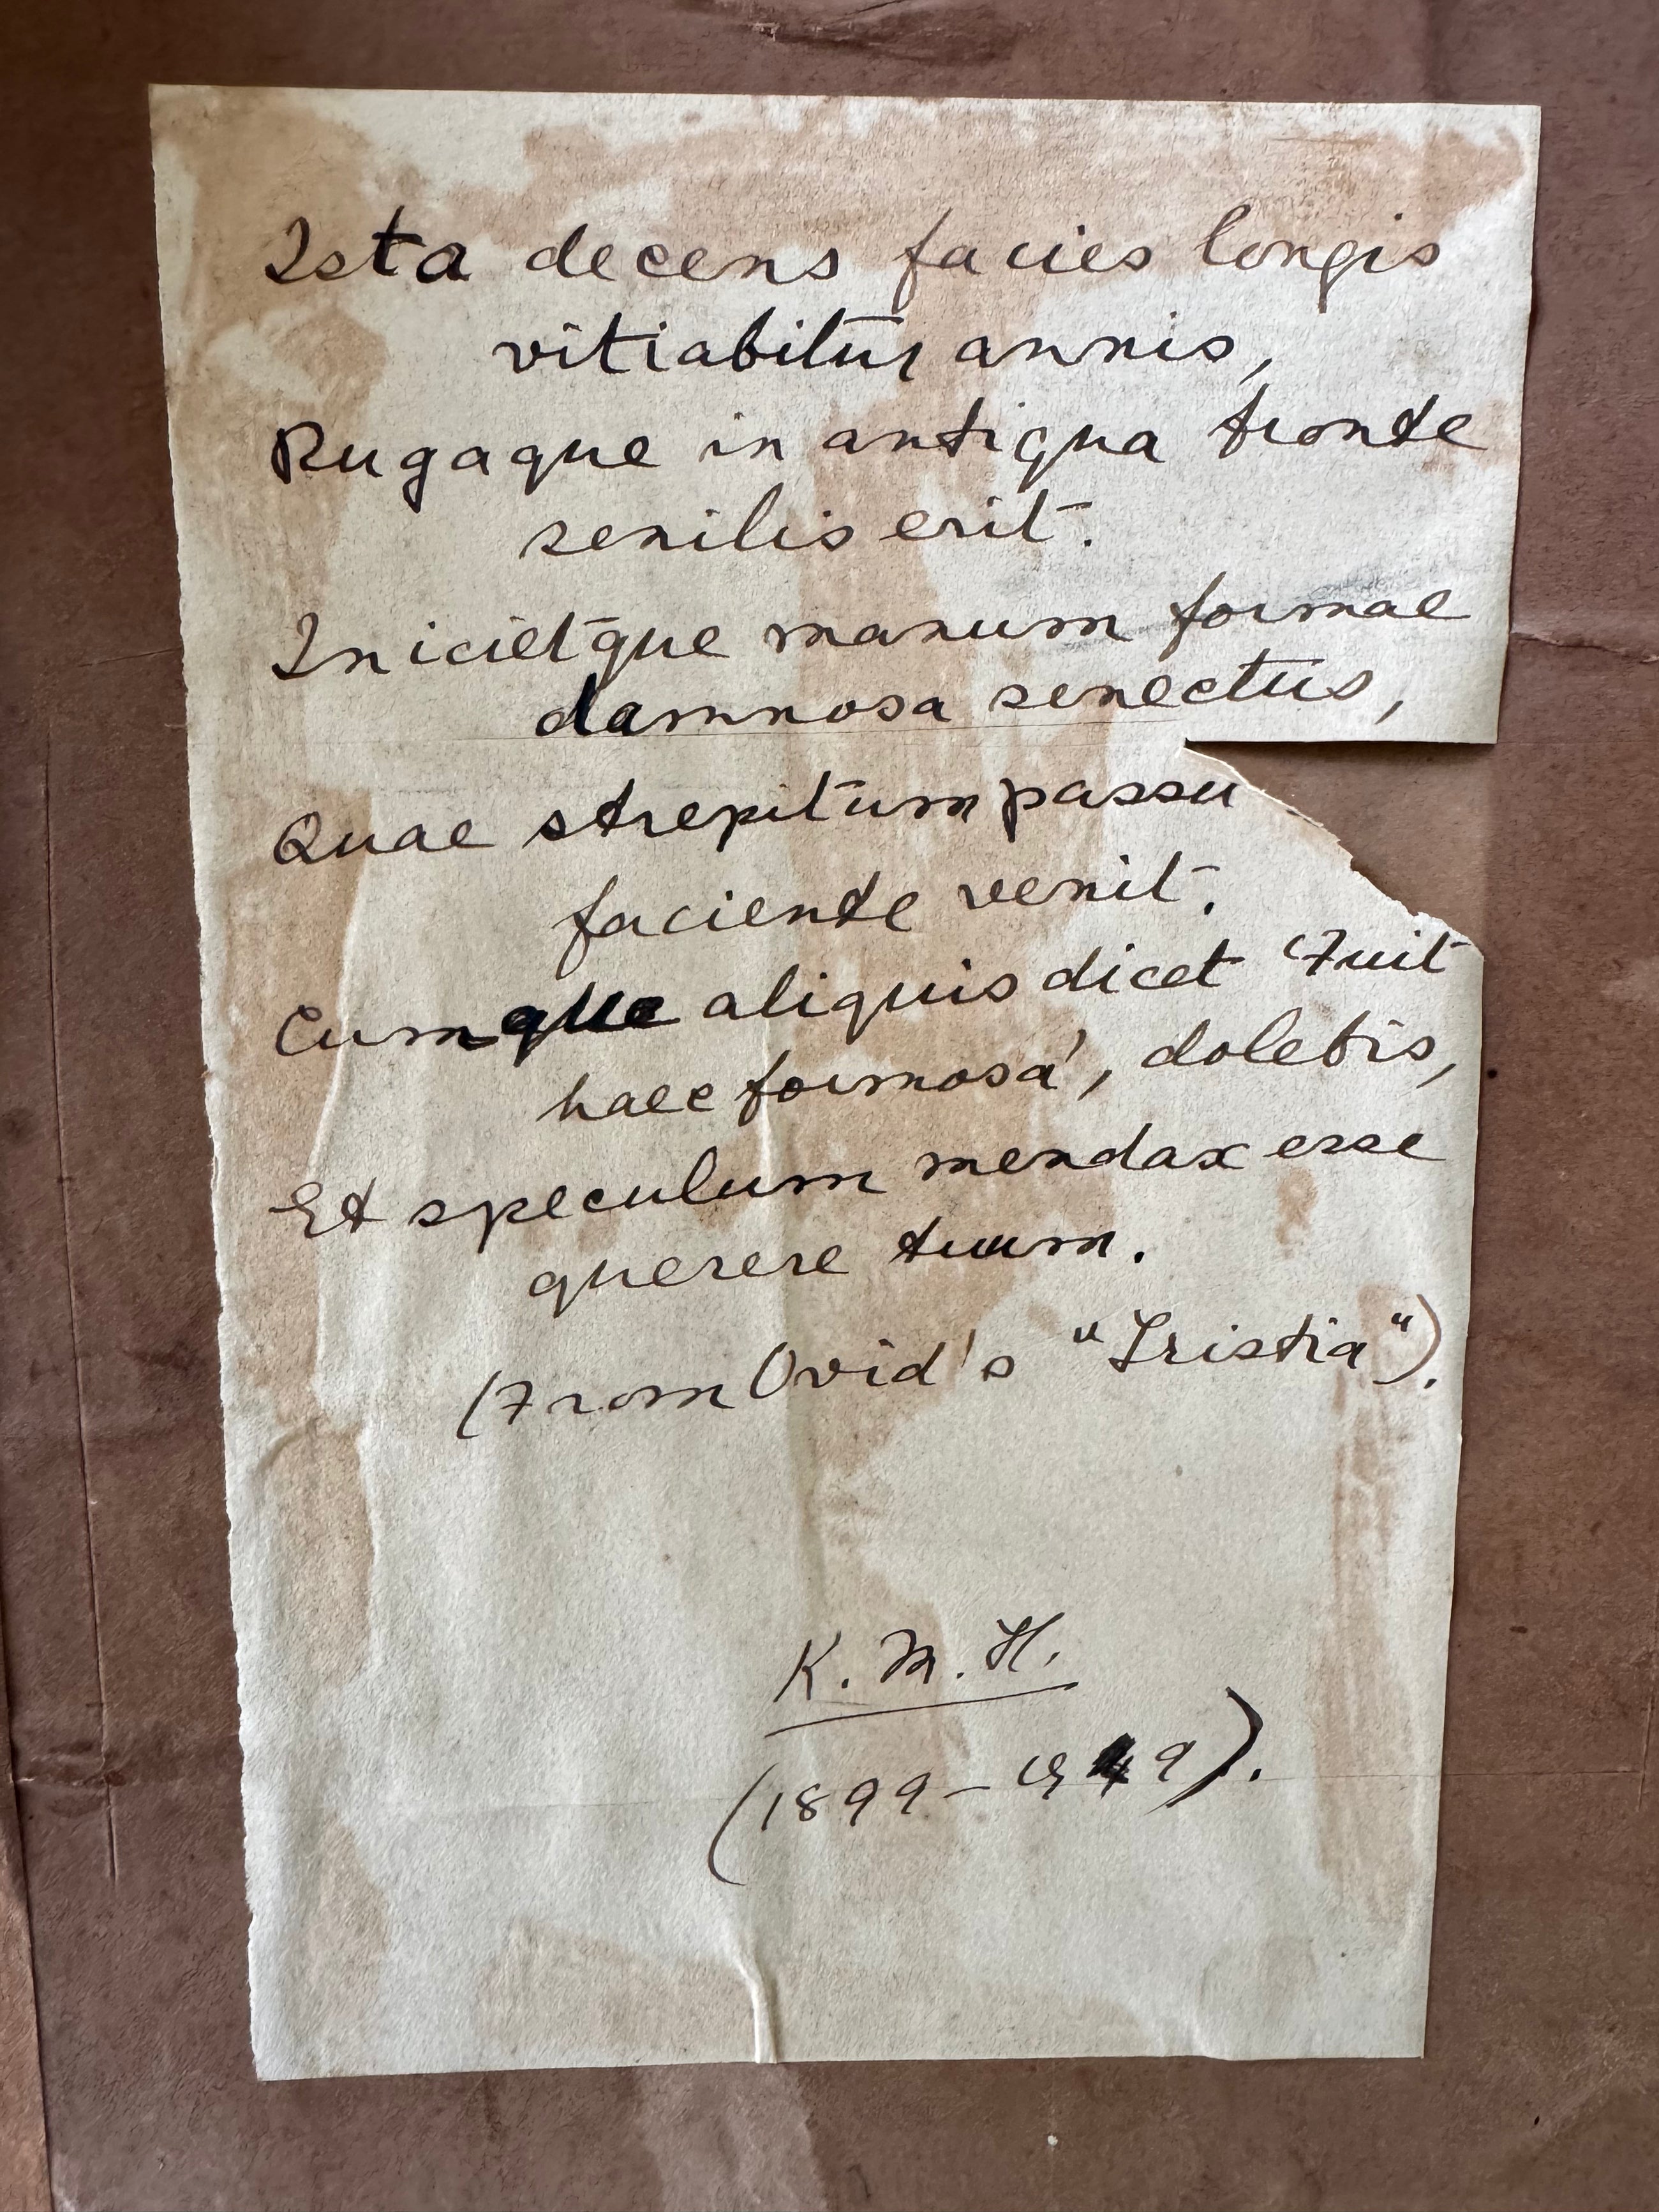 Ista decens facies longis
vitiabitur annis,
Rugaque in antiqua fronte
senilis erit.
Inicietque manum formae
damnosa senectus,
Quae strepitum passu
faciente venit.
Cumque aliquis dicet 'Fuit
haec formosa', dolebis,
Et speculum mendax esse
querere tuum.
(From Ovid's "Tristia").
K. M. H.
(1899-1949).